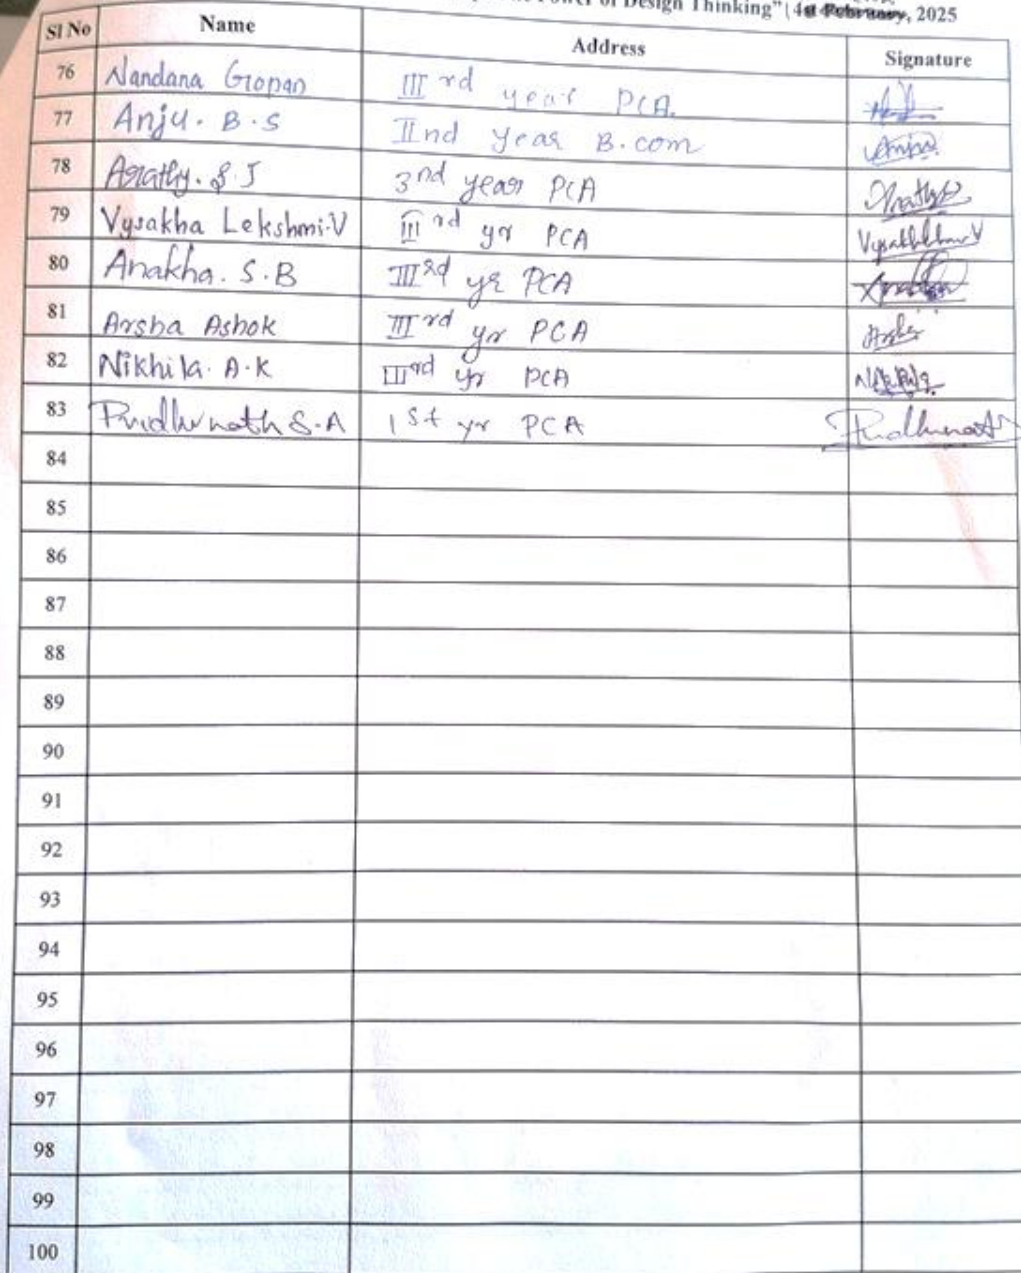 Power of Design Thinking" (4 February, 2025
Sl No Name Address Signature
76 Nandana Gopan IIIrd year PCA.
77 Anju. B.S IInd year B.com
78 Arathy. S.J 3nd year PCA Arathy
79 Vysakha Lekshmi.V IIIrd yr PCA
80 Anakha. S.B IIIrd yr PCA
81 Arsha Ashok IIIrd yr PCA Arsha
82 Nikhila. A.K IIIrd yr PCA Nikhila
83 Pridhunath S.A 1st yr PCA Pridhunath
84
85
86
87
88
89
90
91
92
93
94
95
96
97
98
99
100